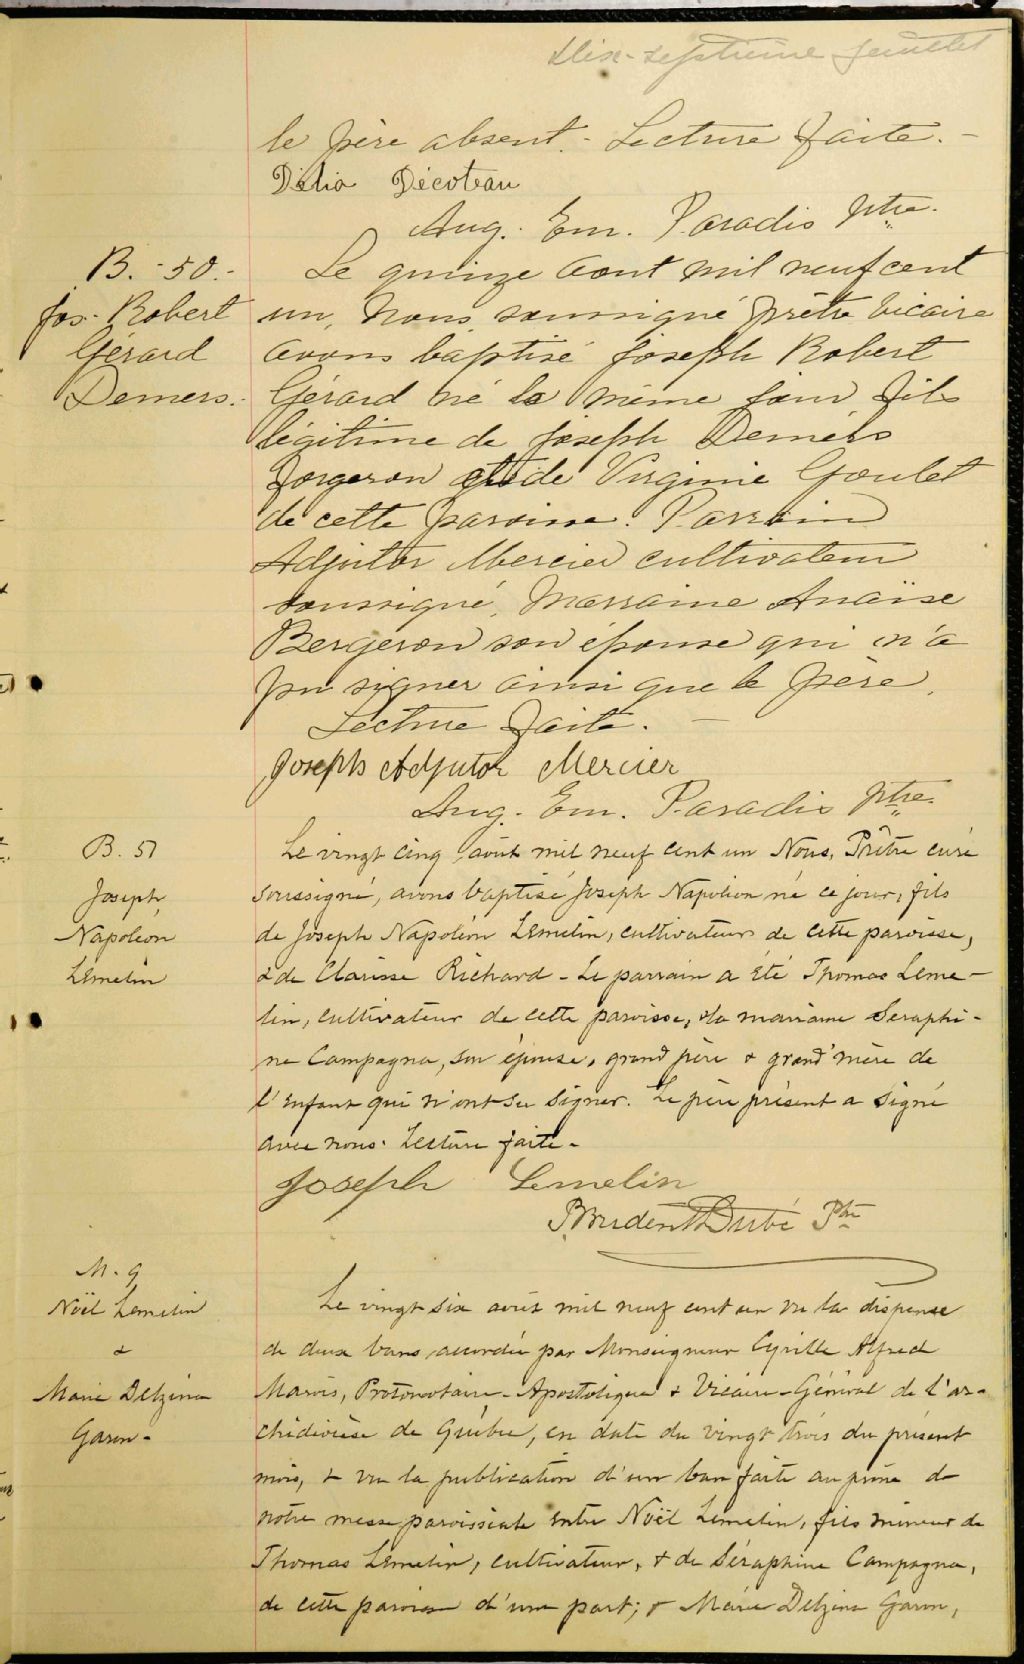 Dix-septième feuillet
le père absent. - Lecture faite. -
Délia Décoteau
Aug. Em. Paradis Ptre.
B. - 50. -
Jos. Robert
Gérard
Demers.
Le quinze Aout mil neuf cent
un, Nous soussigné prêtre vicaire
avons baptisé Joseph Robert
Gérard né le même jour fils
légitime de Joseph Demers
forgeron et de Virginie Goulet
de cette paroisse. Parrain
Adjutor Mercier cultivateur
soussigné, Marraine Anaïse
Bergeron son épouse qui n'a
pu signer ainsi que le père.
Lecture faite. -
Joseph Adjutor Mercier
Aug. Em. Paradis Ptre.
B. 51
Joseph
Napoléon
Lemelin
Le vingt cinq août mil neuf cent un Nous, Prêtre curé
soussigné, avons baptisé Joseph Napoléon né ce jour, fils
de Joseph Napoléon Lemelin, cultivateur de cette paroisse,
& de Clarisse Richard - Le parrain a été Thomas Leme-
lin, cultivateur de cette paroisse, & la marraine Seraphi-
ne Campagna, son épouse, grand père & grand'mère de
l'enfant qui n'ont su signer. Le père présent a signé
avec nous. Lecture faite -
Joseph Lemelin
Prudent Dubé Ptre
M. 9
Noël Lemelin
&
Marie Delzina
Garon -
Le vingt six août mil neuf cent un vu la dispense
de deux bans accordée par Monseigneur Cyrille Alfred
Marois, Protonotaire - Apostolique & Vicaire - Général de l'ar-
chidiocèse de Québec, en date du vingt trois du présent
mois, & vu la publication d'un ban faite au prône de
notre messe paroissiale entre Noël Lemelin, fils mineur de
Thomas Lemelin, cultivateur, & de Séraphine Campagna,
de cette paroisse d'une part; & Marie Delzina Garon,